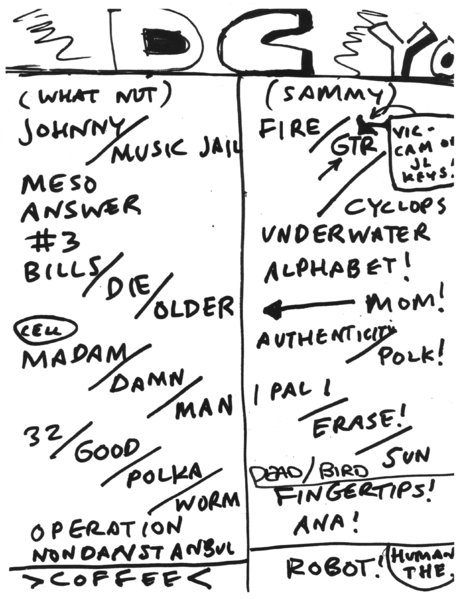 DC YO
(WHAT NUT)
JOHNNY/
MUSIC JAIL
MESO
ANSWER
#3
BILLS/
DIE/
OLDER
CELL
MADAM/
DAMN/
MAN
32/
GOOD/
POLKA/
WORM
OPERATION
NONDANSTANBUL
>COFFEE<
(SAMMY)
FIRE/
GTR/
VIC-
CAM ON
JL
KEYS!
CYCLOPS
UNDERWATER
ALPHABET!
MOM!
AUTHENTICITY/
POLK!
1 PAL 1/
ERASE!/
SUN
DEAD/BIRD
FINGERTIPS!
ANA!
ROBOT!
HUMAN
THE